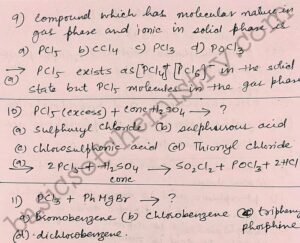 9) Compound which has molecular nature in
gas phase and ionic in solid phase is
a) PCl5 b) CCl4 c) PCl3 d) POCl3
→ PCl5 exists as [PCl4]+ [PCl6]- in the solid
(a) state but PCl5 molecules in the gas phase
10) PCl5 (excess) + conc H2SO4 → ?
a) Sulphuryl chloride b) sulphurous acid
c) chlorosulphonic acid d) Thionyl chloride
(a) → 2PCl5 + H2SO4 → SO2Cl2 + POCl3 + 2HCl
conc
11) PCl3 + PhMgBr → ?
(a) bromobenzene (b) chlorobenzene (c) triphenyl
phosphine
(d) dichlorobenzene.